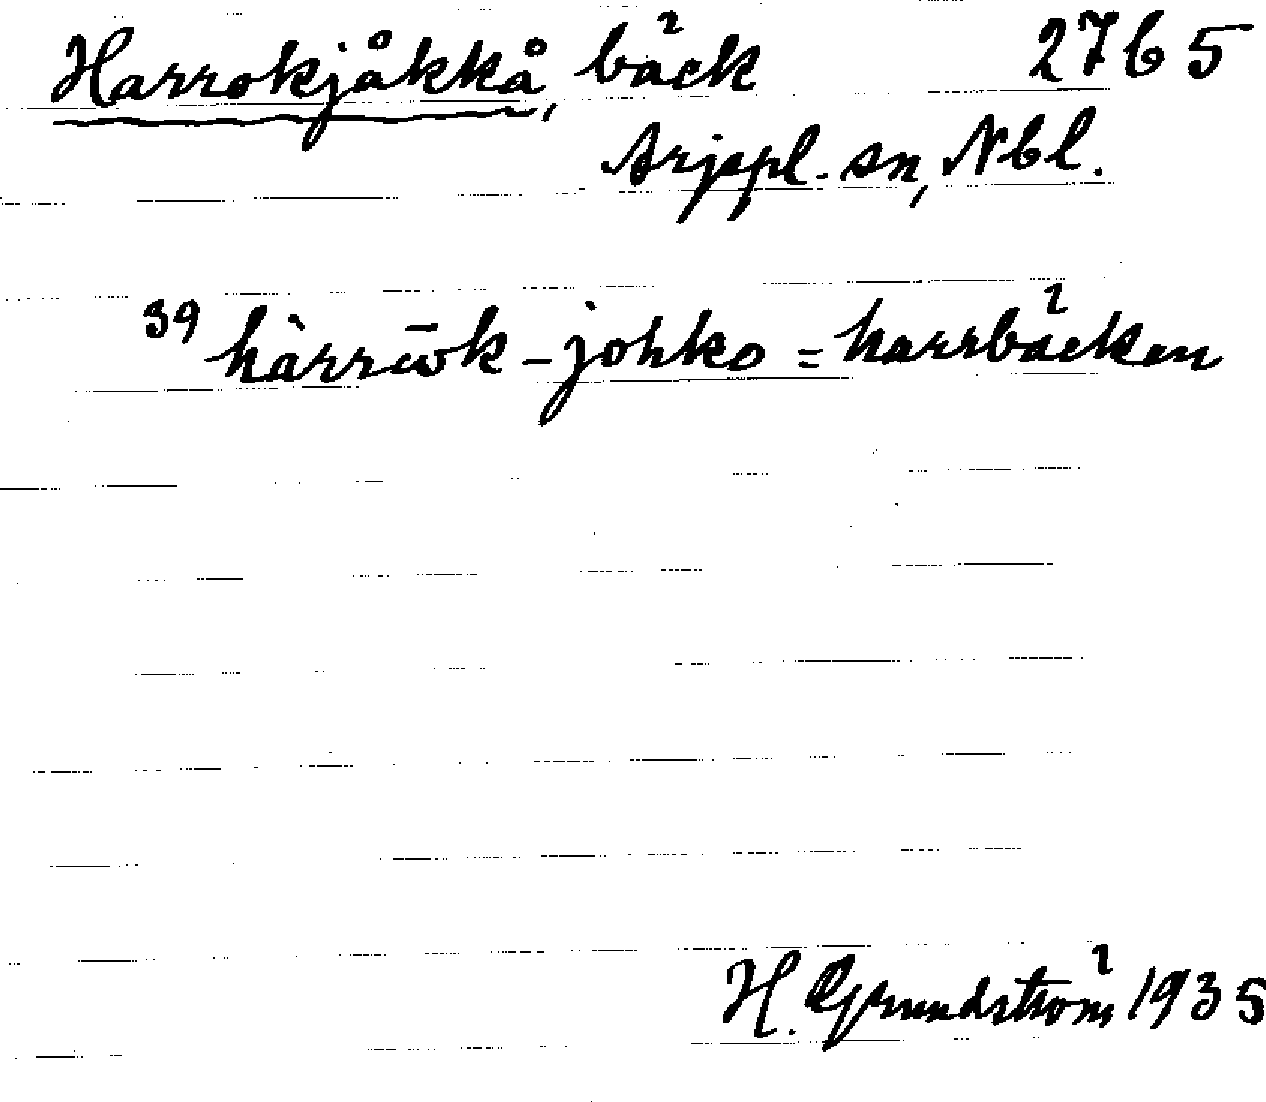 Harrokjåkkå, bäck 2765
Arjepl. sn, Nbl.
39 hàrrω̄k-johko = harrbäcken
H. Grundström 1935